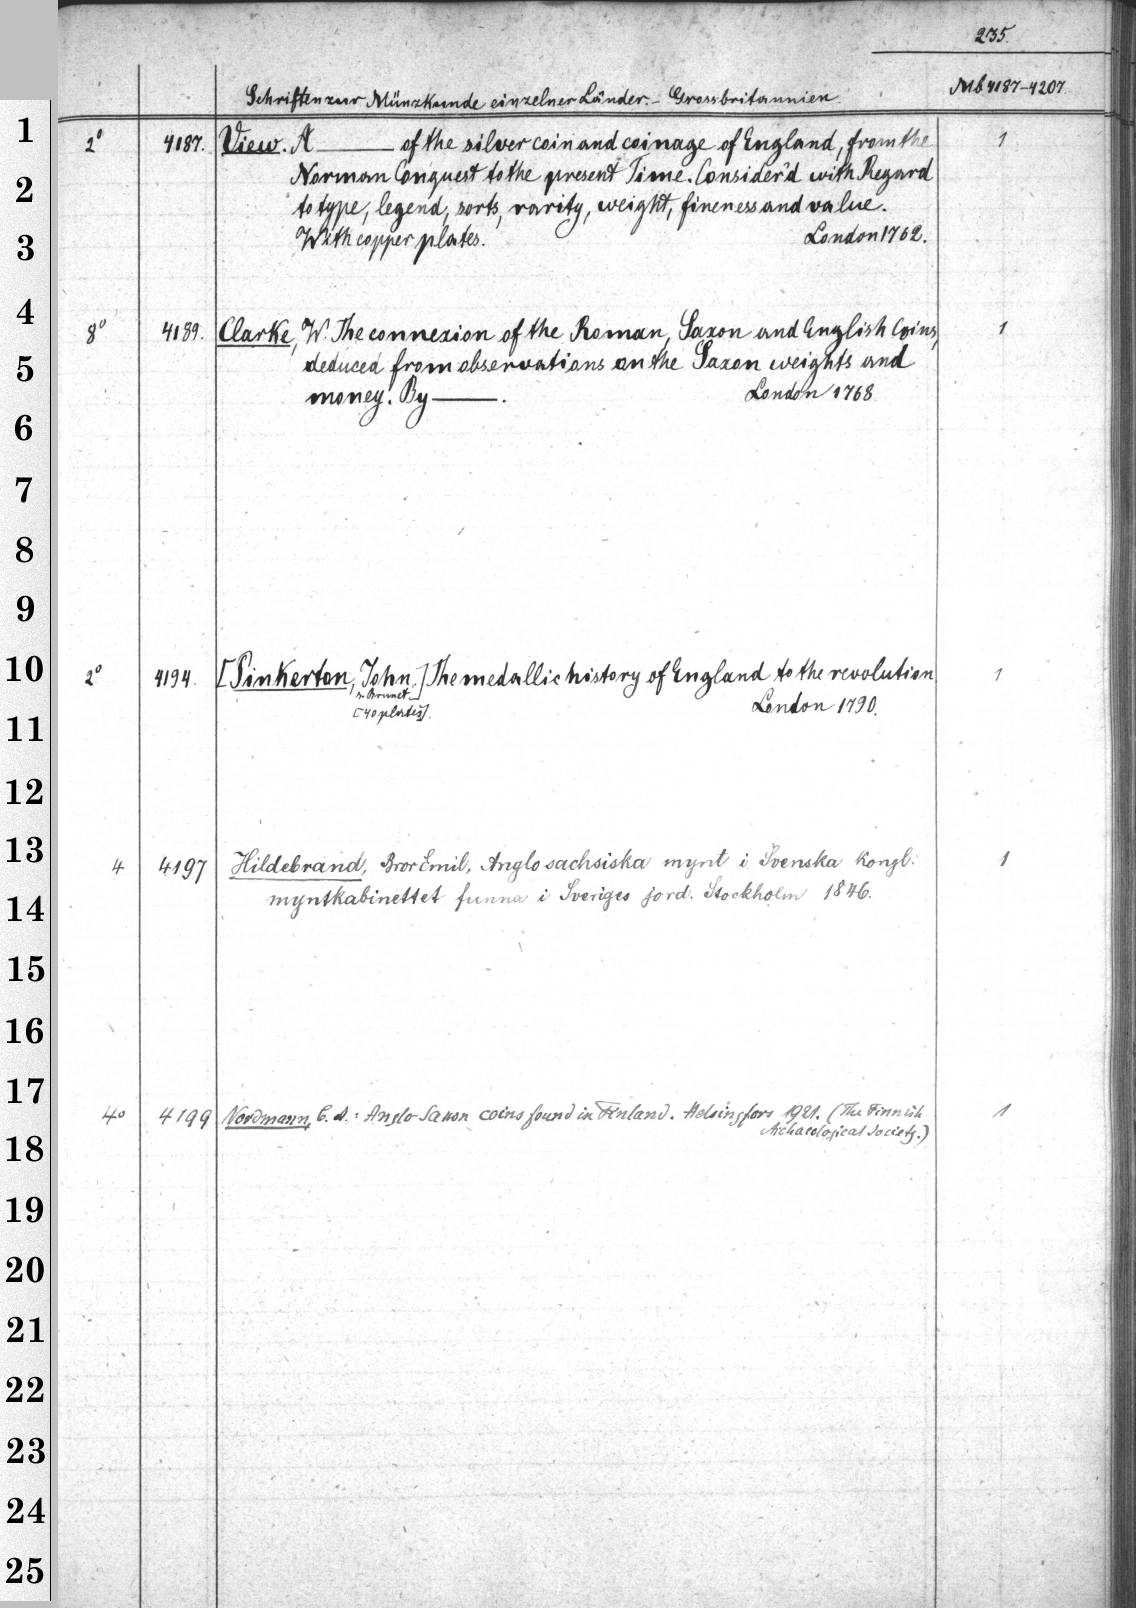 235.
Schriften zur Münzkunde einzelner Länder. - Grossbritannien. Mb 4187-4207.
1
2° 4187. View. A ——— of the silver coin and coinage of England, from the 1
2
Norman Conquest to the present Time. Consider'd with Regard
to type, legend, sorts, rarity, weight, fineness and value.
3
With copper plates. London 1762.
4
8° 4189. Clarke, W. The connexion of the Roman, Saxon and English Coins, 1
5
deduced from observations on the Saxon weights and
money. By ———. London 1768
6
7
8
9
10
2° 4194. [Pinkerton, John.] The medallic history of England to the revolution 1
n. Brunet.
[40 plates]. London 1790.
11
12
13
4 4197 Hildebrand, Bror Emil, Anglosachsiska mynt i Svenska Kongl. 1
14
myntkabinettet funna i Sveriges jord. Stockholm 1846.
15
16
17
4° 4199 Nordmann, C. A.: Anglo-Saxon coins found in Finland. Helsingfors 1921. (The Finnish 1
Archaeological Society.)
18
19
20
21
22
23
24
25